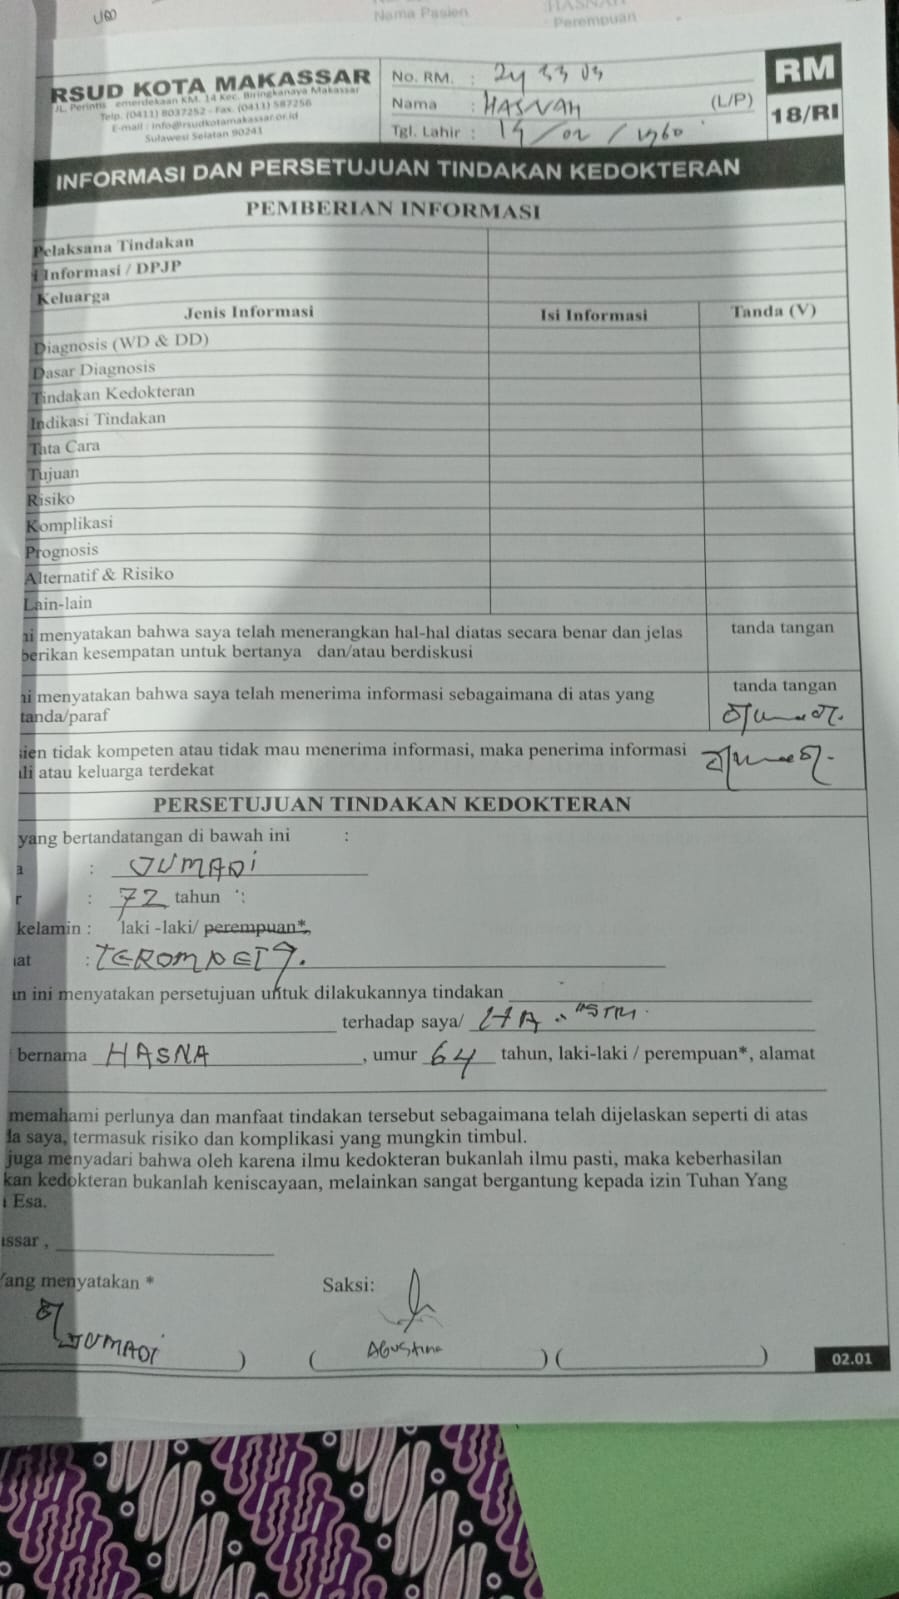 Nama Pasien
HASNAH
Perempuan
RSUD KOTA MAKASSAR
JL. Perintis emerdekaan KM. 14 Kec. Biringkanaya Makassar
Telp. (0411) 8037252 - Fax. (0411) 587256
E-mail : info@rsudkotamakassar.or.id
Sulawesi Selatan 90241
No. RM. : 24 33 03
Nama : HASNAH (L/P)
Tgl. Lahir : 14/02/1960
RM
18/RI
INFORMASI DAN PERSETUJUAN TINDAKAN KEDOKTERAN
PEMBERIAN INFORMASI
Pelaksana Tindakan
i Informasi / DPJP
Keluarga
Jenis Informasi Isi Informasi Tanda (V)
Diagnosis (WD & DD)
Dasar Diagnosis
Tindakan Kedokteran
Indikasi Tindakan
Tata Cara
Tujuan
Risiko
Komplikasi
Prognosis
Alternatif & Risiko
Lain-lain
ni menyatakan bahwa saya telah menerangkan hal-hal diatas secara benar dan jelas tanda tangan
berikan kesempatan untuk bertanya dan/atau berdiskusi
ni menyatakan bahwa saya telah menerima informasi sebagaimana di atas yang tanda tangan
tanda/paraf
sien tidak kompeten atau tidak mau menerima informasi, maka penerima informasi
ali atau keluarga terdekat
PERSETUJUAN TINDAKAN KEDOKTERAN
yang bertandatangan di bawah ini :
a : JUMADI
r : 72 tahun
kelamin : laki -laki/ perempuan*,
at :
an ini menyatakan persetujuan untuk dilakukannya tindakan
terhadap saya/
bernama HASNA, umur 64 tahun, laki-laki / perempuan*, alamat
memahami perlunya dan manfaat tindakan tersebut sebagaimana telah dijelaskan seperti di atas
da saya, termasuk risiko dan komplikasi yang mungkin timbul.
juga menyadari bahwa oleh karena ilmu kedokteran bukanlah ilmu pasti, maka keberhasilan
kan kedokteran bukanlah keniscayaan, melainkan sangat bergantung kepada izin Tuhan Yang
Esa.
assar ,
Yang menyatakan * Saksi:
JUMADI ) ( AGUSTINA ) ( )
02.01